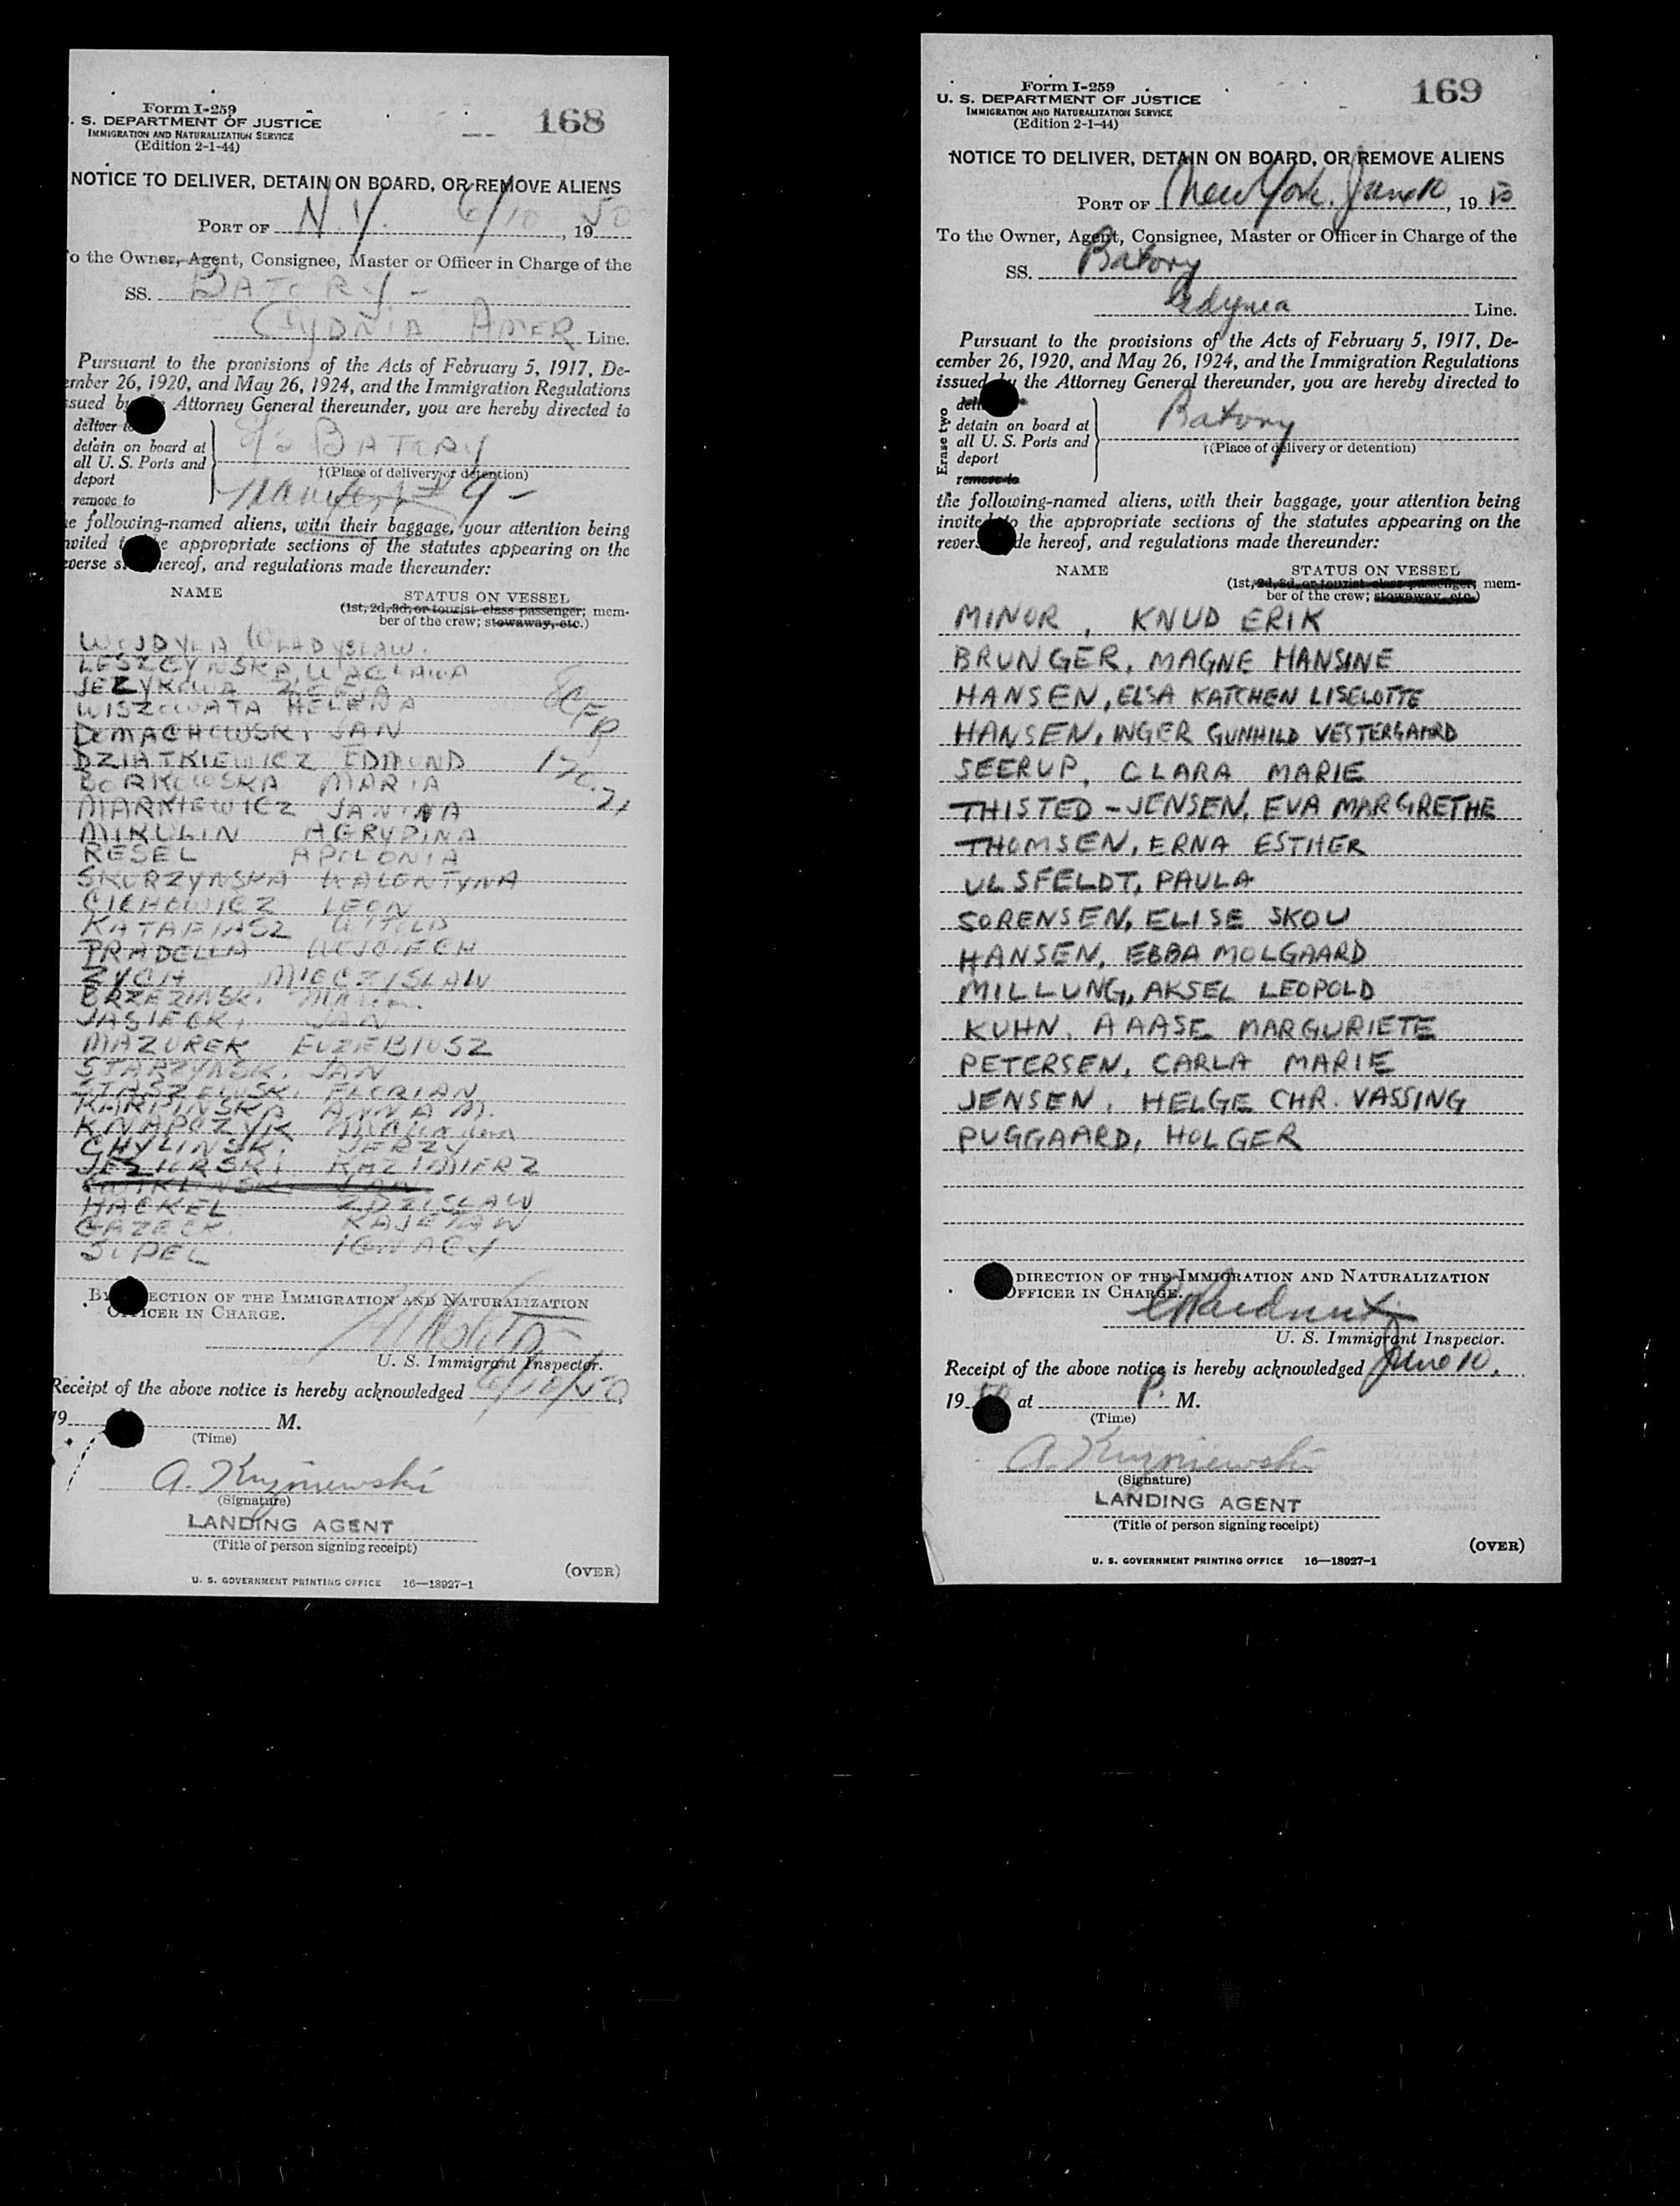 Form I-259
. S. DEPARTMENT OF JUSTICE
IMMIGRATION AND NATURALIZATION SERVICE
(Edition 2-1-44)
168
NOTICE TO DELIVER, DETAIN ON BOARD, OR REMOVE ALIENS
PORT OF N.Y. 6/10, 1950
o the Owner, Agent, Consignee, Master or Officer in Charge of the
SS. BATORY -
GYDNIA AMER Line.
Pursuant to the provisions of the Acts of February 5, 1917, De-
ember 26, 1920, and May 26, 1924, and the Immigration Regulations
ssued by Attorney General thereunder, you are hereby directed to
deliver to
detain on board at
all U. S. Ports and
deport
remove to
S/S BATORY
†(Place of delivery or detention)
Manifest # 9 -
e following-named aliens, with their baggage, your attention being
nvited appropriate sections of the statutes appearing on the
everse hereof, and regulations made thereunder:
NAME
STATUS ON VESSEL
(1st, 2d, 3d, or tourist class passenger; mem-
ber of the crew; stowaway, etc.)
WOJDYLA WLADYSLAW.
LESZCYNSKA, WACLAWA
JEZYKOWA ZOFIA
WISZOWATA HELENA
DOMACHOWSKI JAN
DZIATKIEWICZ EDMUND
BORKOWSKA MARIA
MARKIEWICZ JANINA
MIKULIN AGRYPINA
RESEL APOLONIA
SKURZYNSKA WALENTYNA
CICHOWICZ LEON
KATAFIASZ WITOLD
PRADELLA WOJCIECH
ZYCH MIECZYSLAW
BRZEZINSKI
JASIECKI JAN
MAZUREK EUZEBIUSZ
STARZYNSKI JAN
STASZEWSKI FLORIAN
KARPINSKA ANNA M.
KNAPCZYK
CHYLINSKI JERZY
JEZIORSKI KAZIMIERZ
HACKEL ZDZISLAW
GAZECKI KAJETAN
SOPEL IGNACY
BY DIRECTION OF THE IMMIGRATION AND NATURALIZATION
OFFICER IN CHARGE.
U. S. Immigrant Inspector.
Receipt of the above notice is hereby acknowledged 6/10/50
19 M.
(Time)
A. Kuzniewski
(Signature)
LANDING AGENT
(Title of person signing receipt)
(OVER)
U. S. GOVERNMENT PRINTING OFFICE 16—18927-1
Form I-259
U. S. DEPARTMENT OF JUSTICE
IMMIGRATION AND NATURALIZATION SERVICE
(Edition 2-1-44)
169
NOTICE TO DELIVER, DETAIN ON BOARD, OR REMOVE ALIENS
PORT OF New York. June 10, 1950
To the Owner, Agent, Consignee, Master or Officer in Charge of the
SS. Batory
Gdynia Line.
Pursuant to the provisions of the Acts of February 5, 1917, De-
cember 26, 1920, and May 26, 1924, and the Immigration Regulations
issued by the Attorney General thereunder, you are hereby directed to
Erase two
detain on board at
all U. S. Ports and
deport
remove to
Batory
†(Place of delivery or detention)
the following-named aliens, with their baggage, your attention being
invited to the appropriate sections of the statutes appearing on the
reverse side hereof, and regulations made thereunder:
NAME
STATUS ON VESSEL
(1st, 2d, 3d, or tourist class passenger; mem-
ber of the crew; stowaway, etc.)
MINOR, KNUD ERIK
BRUNGER, MAGNE HANSINE
HANSEN, ELSA KATCHEN LISELOTTE
HANSEN, INGER GUNHILD VESTERGAARD
SEERUP, CLARA MARIE
THISTED-JENSEN, EVA MARGRETHE
THOMSEN, ERNA ESTHER
ULSFELDT, PAULA
SORENSEN, ELISE SKOU
HANSEN, EBBA MOLGAARD
MILLUNG, AKSEL LEOPOLD
KUHN, AAASE MARGURIETE
PETERSEN, CARLA MARIE
JENSEN, HELGE CHR. VASSING
PUGGAARD, HOLGER
DIRECTION OF THE IMMIGRATION AND NATURALIZATION
OFFICER IN CHARGE.
U. S. Immigrant Inspector.
Receipt of the above notice is hereby acknowledged June 10,
1950 at P. M.
(Time)
A. Kuzniewski
(Signature)
LANDING AGENT
(Title of person signing receipt)
(OVER)
U. S. GOVERNMENT PRINTING OFFICE 16—18927-1